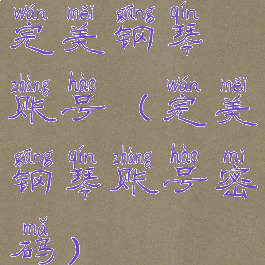 wán měi gāng qín
完美钢琴
zhàng hào wán měi
账号（完美
gāng qín zhàng hào mì
钢琴账号密
mǎ
码）